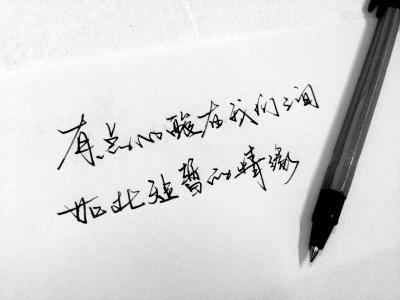 有点心酸在我们之间
如此短暂的情缘